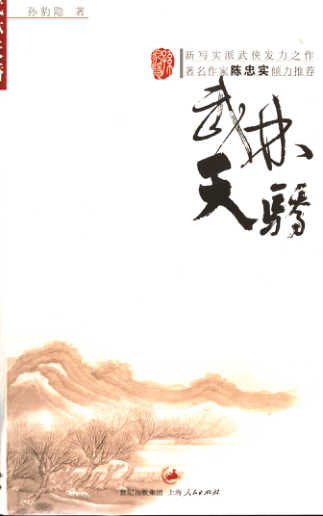 孙豹隐 著
新写实派武侠发力之作
著名作家陈忠实倾力推荐
武林
天骄
世纪出版集团 上海人民出版社